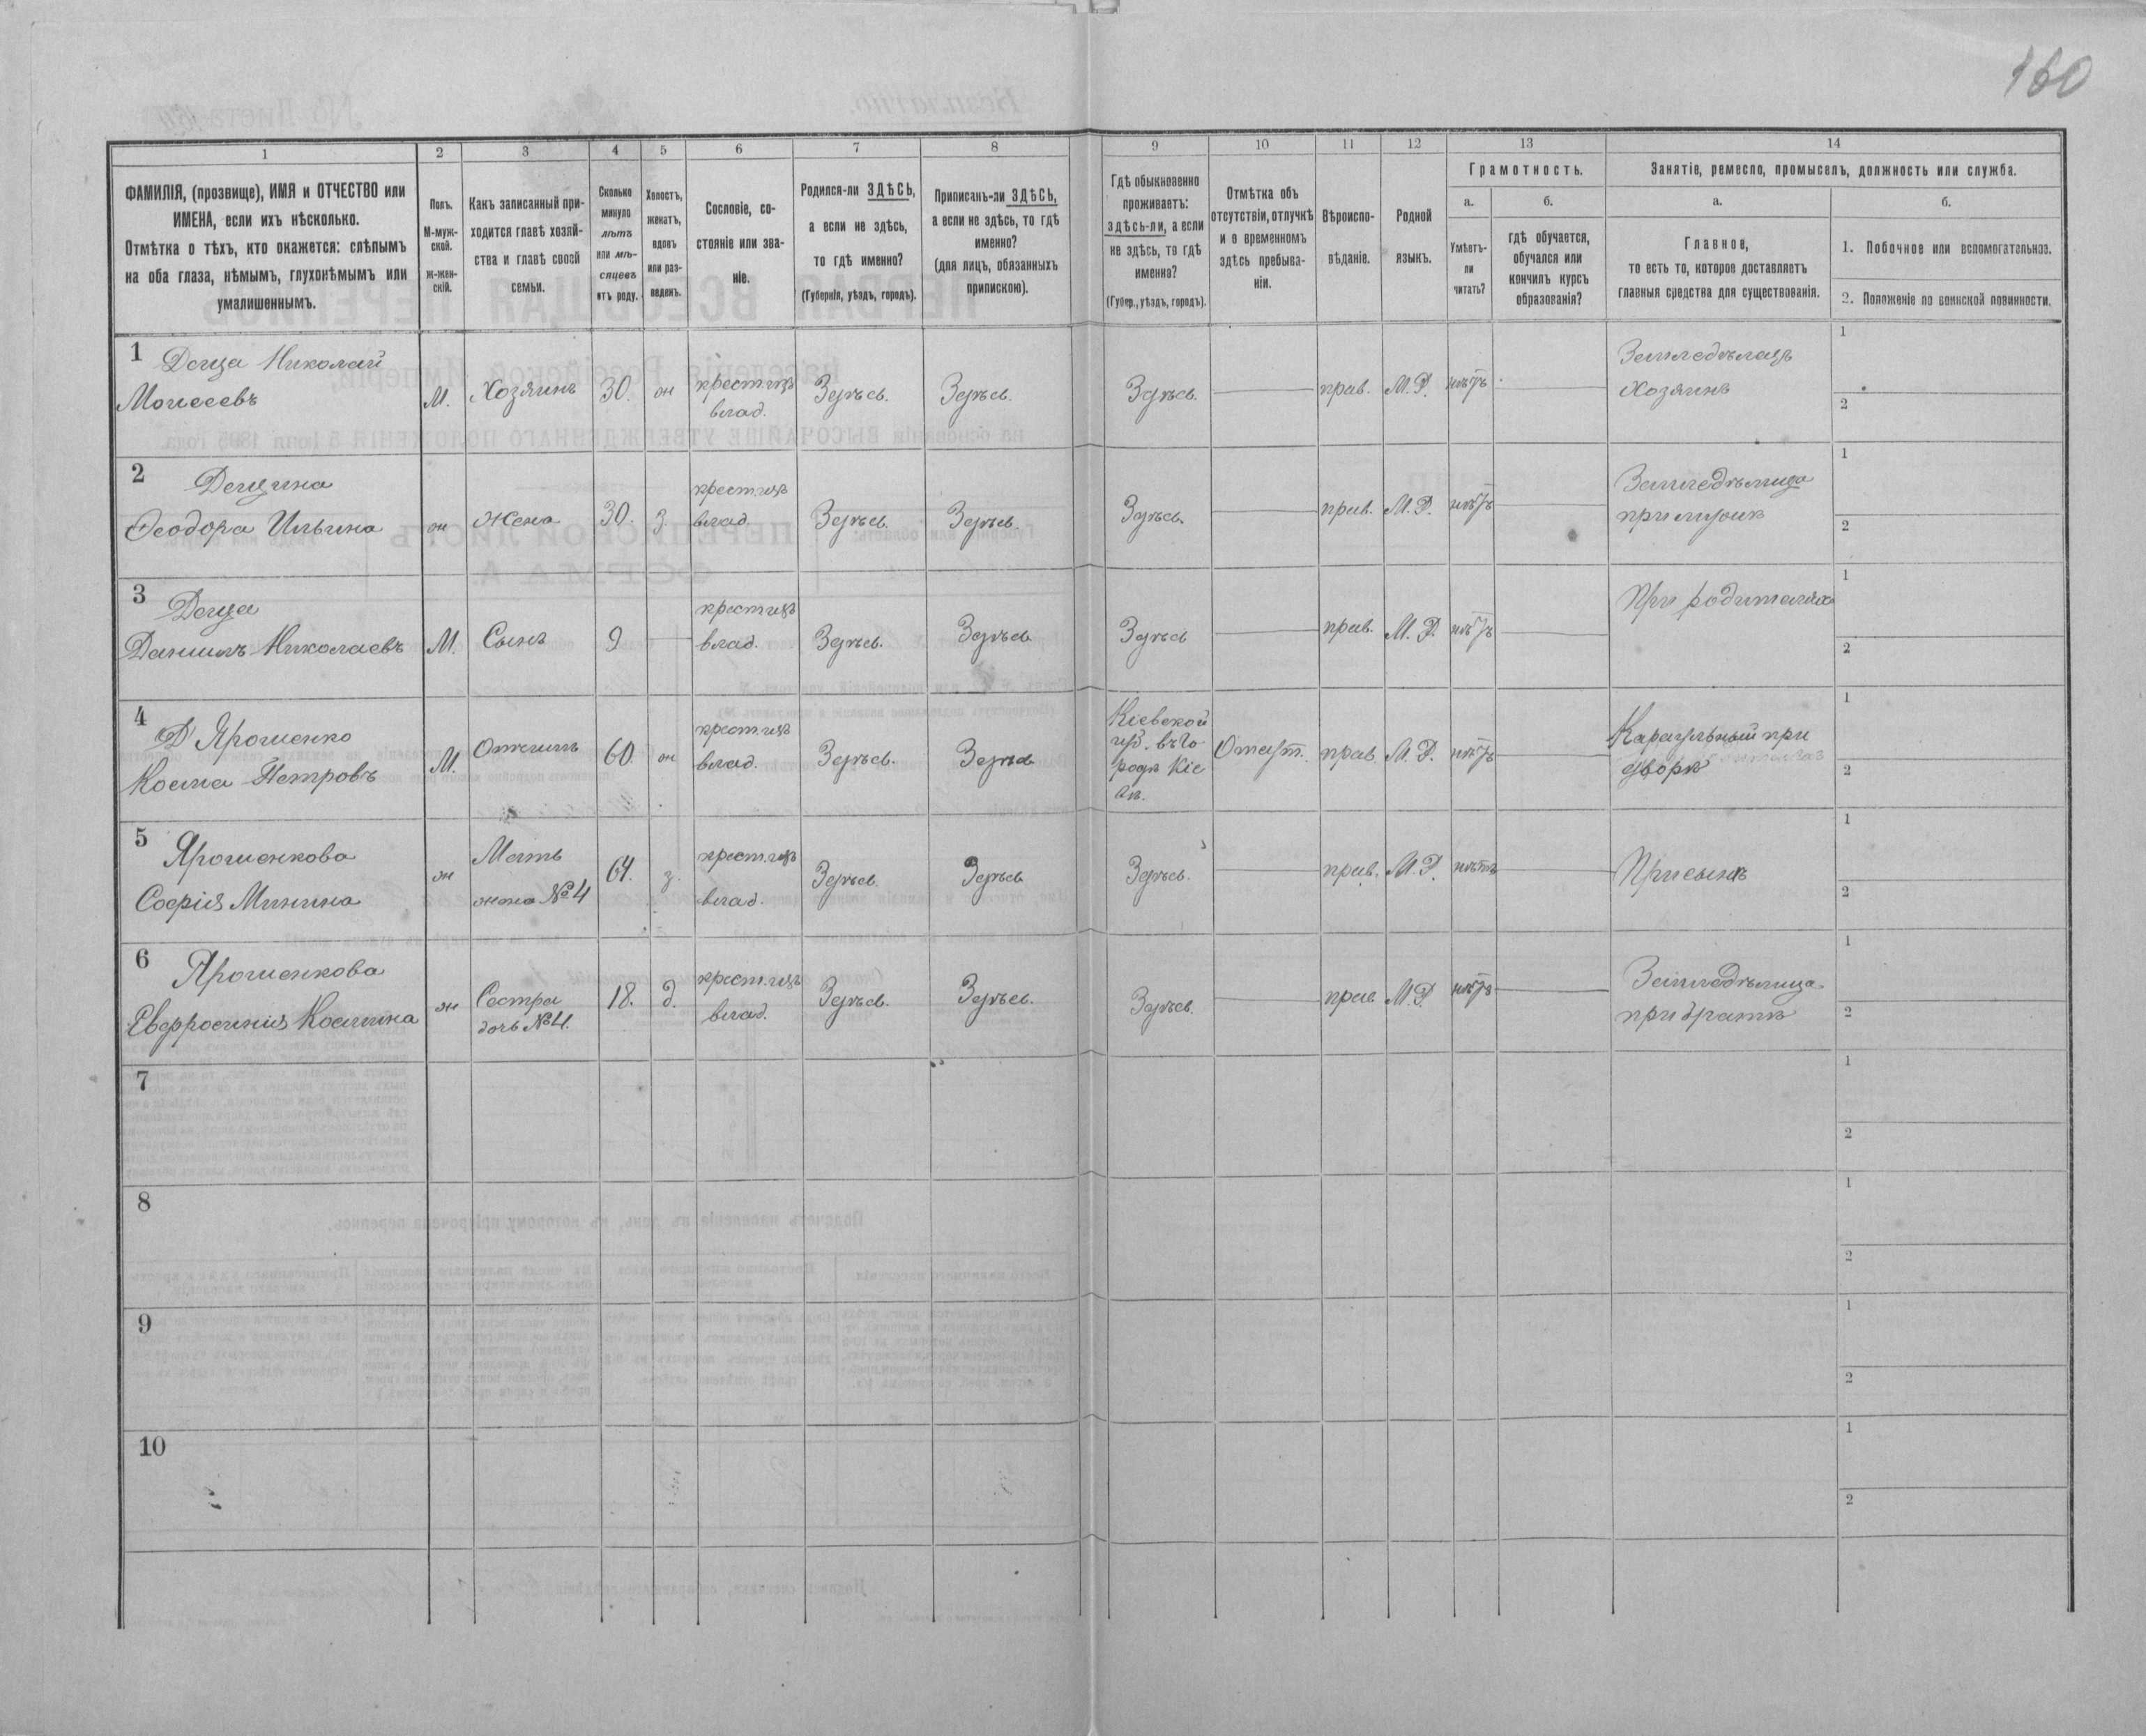 160
1 2 3 4 5 6 7 8 9 10 11 12 13 14
ФАМИЛІЯ, (прозвище), ИМЯ и ОТЧЕСТВО или
ИМЕНА, если ихъ нѣсколько.
Отмѣтка о тѣхъ, кто окажется: слѣпымъ
на оба глаза, нѣмымъ, глухонѣмымъ или
умалишеннымъ.
Полъ.
М-муж-
ской.
ж-жен-
скій.
Какъ записанный при-
ходится главѣ хозяй-
ства и главѣ своей
семьи.
Сколько
минуло
лѣтъ
или мѣ-
сяцевъ
отъ роду.
Холостъ,
женатъ,
вдовъ
или раз-
веденъ.
Сословіе, со-
стояніе или зва-
ніе.
Родился-ли ЗДѢСЬ,
а если не здѣсь,
то гдѣ именно?
(Губернія, уѣздъ, городъ).
Приписанъ-ли ЗДѢСЬ,
а если не здѣсь, то гдѣ
именно?
(для лицъ, обязанныхъ
припискою).
Гдѣ обыкновенно
проживаетъ:
здѣсь-ли, а если
не здѣсь, то гдѣ
именно?
(Губер., уѣздъ, городъ).
Отмѣтка объ
отсутствіи, отлучкѣ
и о временномъ
здѣсь пребыва-
ніи.
Вѣроиспо-
вѣданіе.
Родной
языкъ.
Грамотность.
а.
Умѣетъ-
ли
читать?
б.
гдѣ обучается,
обучался или
кончилъ курсъ
образованія?
Занятіе, ремесло, промыселъ, должность или служба.
а.
Главное,
то есть то, которое доставляетъ
главныя средства для существованія.
б.
1. Побочное или вспомогательное.
2. Положеніе по воинской повинности.
1 Деща Николай
Моисеевъ
М. Хозяинъ 30. ж крест. изъ
влад.
Здѣсь. Здѣсь. Здѣсь. прав. М.Р. нѣтъ
Земледѣлецъ
Хозяинъ
1
2
2 Дещина
Ѳеодора Ильина
ж Жена 30. з. крест. изъ
влад.
Здѣсь. Здѣсь. Здѣсь. прав. М.Р. нѣтъ
Земледѣлица
при мужѣ
1
2
3 Деща
Даніилъ Николаевъ
М. Сынъ 9 крест. изъ
влад.
Здѣсь. Здѣсь Здѣсь прав. М.Р. нѣтъ
При родителяхъ
1
2
4 Ярошенко
Косма Петровъ
М. Отчимъ 60. ж крест. изъ
влад.
Здѣсь. Здѣсь
Кіевской
губ. въ го-
родѣ Кіе
вѣ.
Отсут. прав. М.Р. нѣтъ
Караульный при
дворѣ
1
2
5 Ярошенкова
Софія Минина
ж Мать
жена №4
64. з. крест. изъ
влад.
Здѣсь. Здѣсь Здѣсь. прав. М.Р. нѣтъ
При сынѣ
1
2
6 Ярошенкова
Евфросинія Космина
ж Сестра
дочь №4.
18. д. крест. изъ
влад.
Здѣсь. Здѣсь. Здѣсь. прав. М.Р. нѣтъ
Земледѣлица
при братѣ
1
2
7
1
2
8
1
2
9
1
2
10
1
2